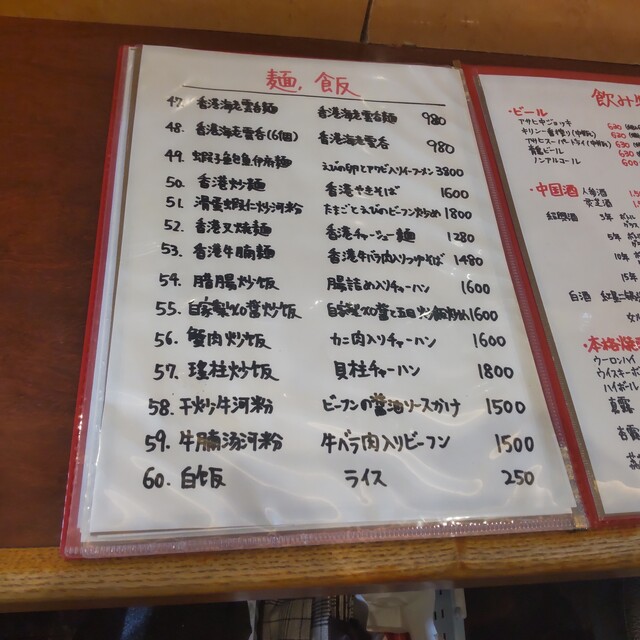 麺, 飯
47. 香港海老雲呑麺 香港海老雲呑麺 980
48. 香港海老雲呑(6個) 香港海老雲呑 980
49. 蝦子鮑魚伊府麺 3800
50. 香港炒麺 香港やきそば 1600
51. 滑蛋蝦仁炒河粉 たまごとえびのビーフン炒め 1800
52. 香港叉焼麺 香港チャーシュー麺 1280
53. 香港牛腩麺 香港牛バラ肉入りつゆそば 1480
54. 腊腸炒飯 腸詰め入りチャーハン 1600
55. 自家製XO醤炒飯 自家製XO醤と五目 1600
56. 蟹肉炒飯 カニ肉入りチャーハン 1600
57. 瑤柱炒飯 貝柱チャーハン 1800
58. 干炒牛河粉 ビーフンの醤油ソースかけ 1500
59. 牛腩汤河粉 牛バラ肉入りビーフン 1500
60. 白飯 ライス 250
飲み
・ビール
アサヒ中ジョッキ 630
キリン一番搾り(中瓶) 630
アサヒスーパードライ(中瓶) 630
青島ビール 630
ノンアルコール 600
・中国酒
紹興酒 3年
5年
10年
15年
白酒
・本格焼
ウーロンハイ
ウイスキー
ハイボール
真露